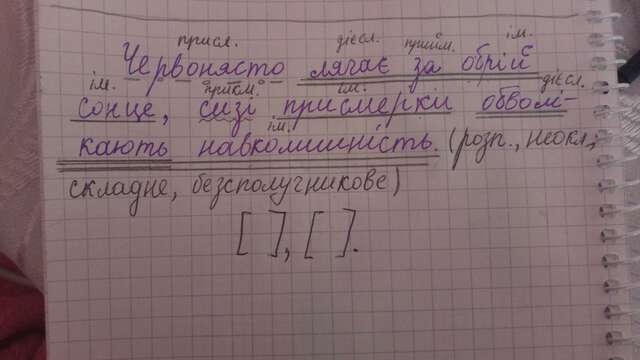 присл. дієсл. прийм. ім.
Червонясто лягає за обрій
ім. прикм. ім. дієсл.
сонце, сизі присмерки обволі-
ім.
кають навколишність. (розп., неокл.,
складне, безсполучникове)
[ ], [ ].